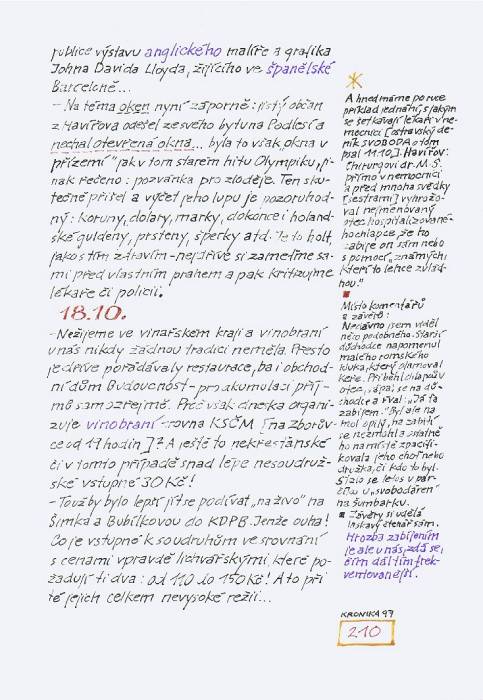 publice výstavu anglického malíře a grafika
Johna Davida Lloyda, žijícího ve španělské
Barceloně...
- Na téma oken nyní záporně: jistý občan
z Havířova odešel ze svého bytu na Podlesí a
nechal otevřená okna... byla to však okna v
přízemí "jak v tom starém hitu Olympiku, ji-
nak řečeno: pozvánka pro zloděje. Ten sku-
tečně přišel a výčet jeho lupu je pozoruhod-
ný: koruny, dolary, marky, dokonce i holand-
ské guldeny, prsteny, šperky atd. Je to holt,
jako s tím zdravím - nejdříve si zameťme sa-
mi před vlastním prahem a pak kritizujme
lékaře či policii.
18.10.
- Nežijeme ve vinařském kraji a vinobraní
u nás nikdy žádnou tradici neměla. Přesto
je dříve pořádávaly restaurace, ba i obchod-
ní dům Budoucnost - pro akumulaci příj-
mů samozřejmě. Proč však dneska organi-
zuje vinobraní zrovna KSČM [na Zborův-
ce od 17 hodin]? A ještě to nekřesťanské
či v tomto případě snad lépe nesoudruž-
ské vstupné 30 Kč!
- To už by bylo lepší jít se podívat „na živo" na
Šimka a Bubílkovou do KDPB. Jenže ouha!
Co je vstupné k soudruhům ve srovnání
s cenami vpravdě lichvářskými, které po-
žadují ti dva: od 110 do 150 Kč! A to při
té jejich celkem nevysoké režii...
A hned máme po ruce
příklad jednání, s jakým
se setkávají lékaři v ne-
mocnici [ostravský de-
ník SVOBODA o tom
psal 11.10.]. Havířov:
Chirurgovi dr. M. S.
přímo v nemocnici
a před mnoha svědky
[sestrami] vyhrožo-
val nejmenovaný
otec hospitalizované-
ho chlapce, že ho
zabije on sám nebo
s pomocí „známých,
kteří to lehce zvlád-
nou."
Místo komentářů
a závěrů:
Nedávno jsem viděl
něco podobného. Starší
důchodce napomenul
malého romského
kluka, který olamoval
keře. Přiběhl chlapův
otec, sápal se na dů-
chodce a řval: „Já ťa
zabijem." Byl ale na
mol opilý, na zabití
se nezmohl a ostatně
ho na místě zpacifi-
kovala jeho choť nebo
družka, či kdo to byl.
Stalo se letos v pár-
číku u „svobodáren"
na Šumbarku.
Závěry si udělá
laskavý čtenář sám.
Hrozba zabijením
je ale u nás, zdá se,
čím dál tím frek-
ventovanější.
KRONIKA 97
210